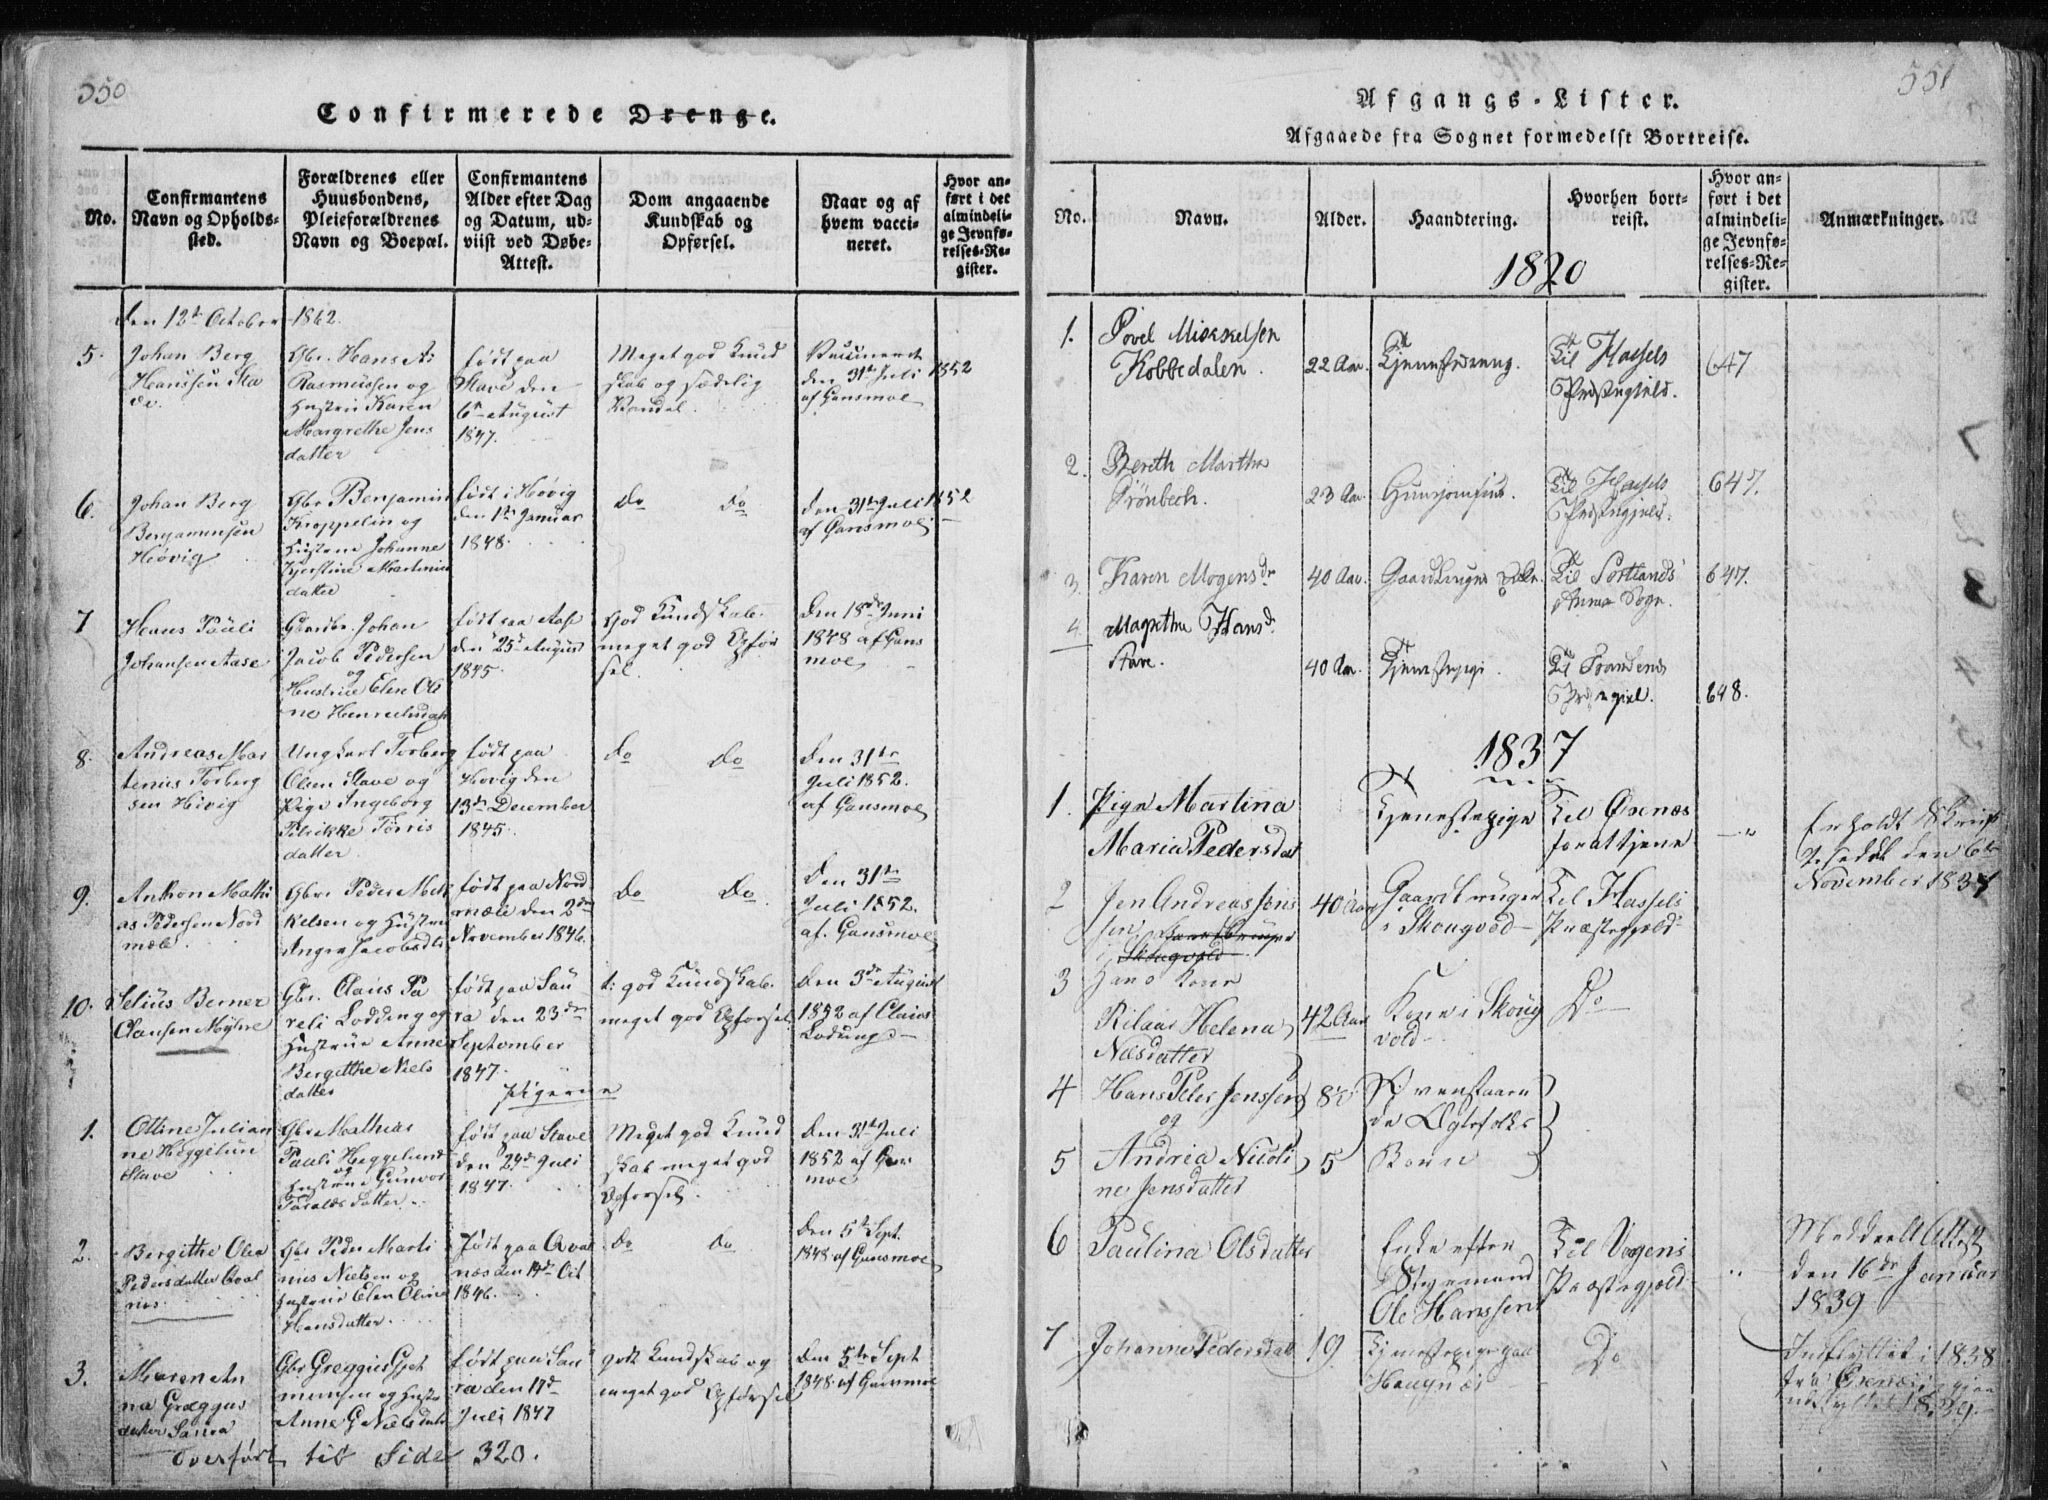 550
Confirmerede Drenge.
No.
Confirmantens
Navn og Opholds-
sted.
Forældrenes eller
Huusbondens,
Pleieforældrenes
Navn og Boepæl.
Confirmantens
Alder efter Dag
og Datum, ud-
viist ved Døbe-
Attest.
Dom angaaende
Kundskab og
Opførsel.
Naar og af
hvem vacci-
neret.
Hvor an-
ført i det
almindeli-
ge Jevnfø-
relses-Re-
gister.
den 12te October 1862.
5.
Johan Berg
Hanssen Sta
ve.
Gbr. Hans A:
Rasmussen og
Hustru Karen
Margrethe Jens
datter
født paa
Stave den
6te August
1847.
Meget god Kund
skab og sædelig
Vandel.
Vaccineret
den 31te Juli 1852
af Gansmoe
6.
Johan Berg
Benjaminsen
Høvig
Gbr Benjamin
Kroppelin og
Hustrue Johanne
Kjerstine Martinus
datter
født i Høvig
den 1te Januar
1848.
Do Do
den 31te Juli 1852
af Gansmoe
7
Hans Pauli
Johansen Aase
Gaardbr. Johan
Jacob Pedersen
og
Hustrue Elen Oli
ne Henrichsdatr
født paa Aase
den 25de August
1845
God Kundskab.
meget god Opfør
sel.
den 18de Juni
1848 af Gans
moe
8.
Andreas Mar
tenius Torberg
sen Høvig
Ungkarl Torberg
Olsen Stave og
Pige Ingeborg
Pilrikke Törris
datter
født paa
Høvig den
13de December
1845.
Do Do
den 31te
Juli 1852.
af Gansmoe
9.
Anthon Mathi
as Pedersen Nord
mæle
Gbr. Peder Mek
kelsen og Hustru
Angra Jacobsdtr
født paa Nord
mæle den 2den
November 1846.
Do Do
den 31te
Juli 1852.
af. Gansmoe
10.
Selius Berner
Clausen Myhre
Gbr. Claus Pa
reli Lodding og
Hustrue Anne
Bergitthe Niels
datter
født paa Sau
ra den 23de
September
1847
t: god Kundskab.
meget god Opførsel.
den 3de August
1852 af Claus
Loding
Pigerne
1.
Ottine Julian
ne Heggelun
Stave
Gbr Mathias
Pauli Heggelund
og
Hustrue Gunvor
Taraldsdatter
født paa Stave
den 29de Juli
1847.
Meget god Kund
skab meget god
Opførsel.
den 31te Juli
1852 af Gans
moe
2.
Bergithe Olea
Pedersdatter Qval
nes
Gbr Peder Marti
nus Nielsen og
Hustrue Elen Oline
Hansdatter
født paa Qval
næs den 14de Oct
1846.
Do Do
den 5te Sept.
1848 af Gansmoe
3.
Maren An
na Græggus
datter Saura
Gbr Greggus Gjet
mumsen og Hustr
Anne G Nielsdatr
født paa Sau
ra den 17de
Juli 1847
godt Kundskab og
meget god Opførsel
den 5te Sept
1848 af Gansmoe
Overført til Side 320.
551
Afgangs-Lister.
Afgaaede fra Sognet formedelst Bortreise.
No.
Navn.
Alder.
Haandtering.
Hvorhen bort-
reist.
Hvor an-
ført i det
almindeli-
ge Jevnfø-
relses-Re-
gister.
Anmærkninger.
1820
1.
Povel Mickkelsen
Kobbedalen.
22 Aar.
Tjenestedreng.
Til Hassels
Præstegjeld.
647
2.
Bereth Martha
Grönbech.
23 Aar.
Til Hassels
Præstegjeld.
647.
3.
Karen Mogensdr
40 Aar.
Til Sortlands
Sogn.
647.
4.
Magretha Hansdr
Stave.
40 Aar.
Tjenestepige.
Til Trondenes
Præstegiel.
648.
1837
1.
Pige Martina
Maria Pedersdat
Tjenestepige
Til Øxnæs
for at tjene
Erholdt Skrifts
Seddel den 6te
November 1837
2
Jen Andreas Jens
sen Gaardbruger
i Skougvold
40 Aar
Gaardbruger
i Skougvod
Til Hassels
Præstegjeld
3
Hans Kone
Rilaas Helena
Nilsdatter
42 Aar
Kone i Skoug
vold
Do
4
Hans Peter Jenssen
og
8
Ovenstaaen
de Ægtefolks
5
Andrea Nicoli
ne Jensdatter
5
Børn
6
Paulina Olsdatter
Enke efter
Styrmand
Ole Hanssen
Til Vogens
Præstegjeld
Meddeelt Attest
den 16de Januar
1839
7
Johanne Pedersdatt
19
Tjenestepige paa
Haugnæs
Do
Indflyttet i 1838
fra Øxnæs igjen
udflyttet 1839.